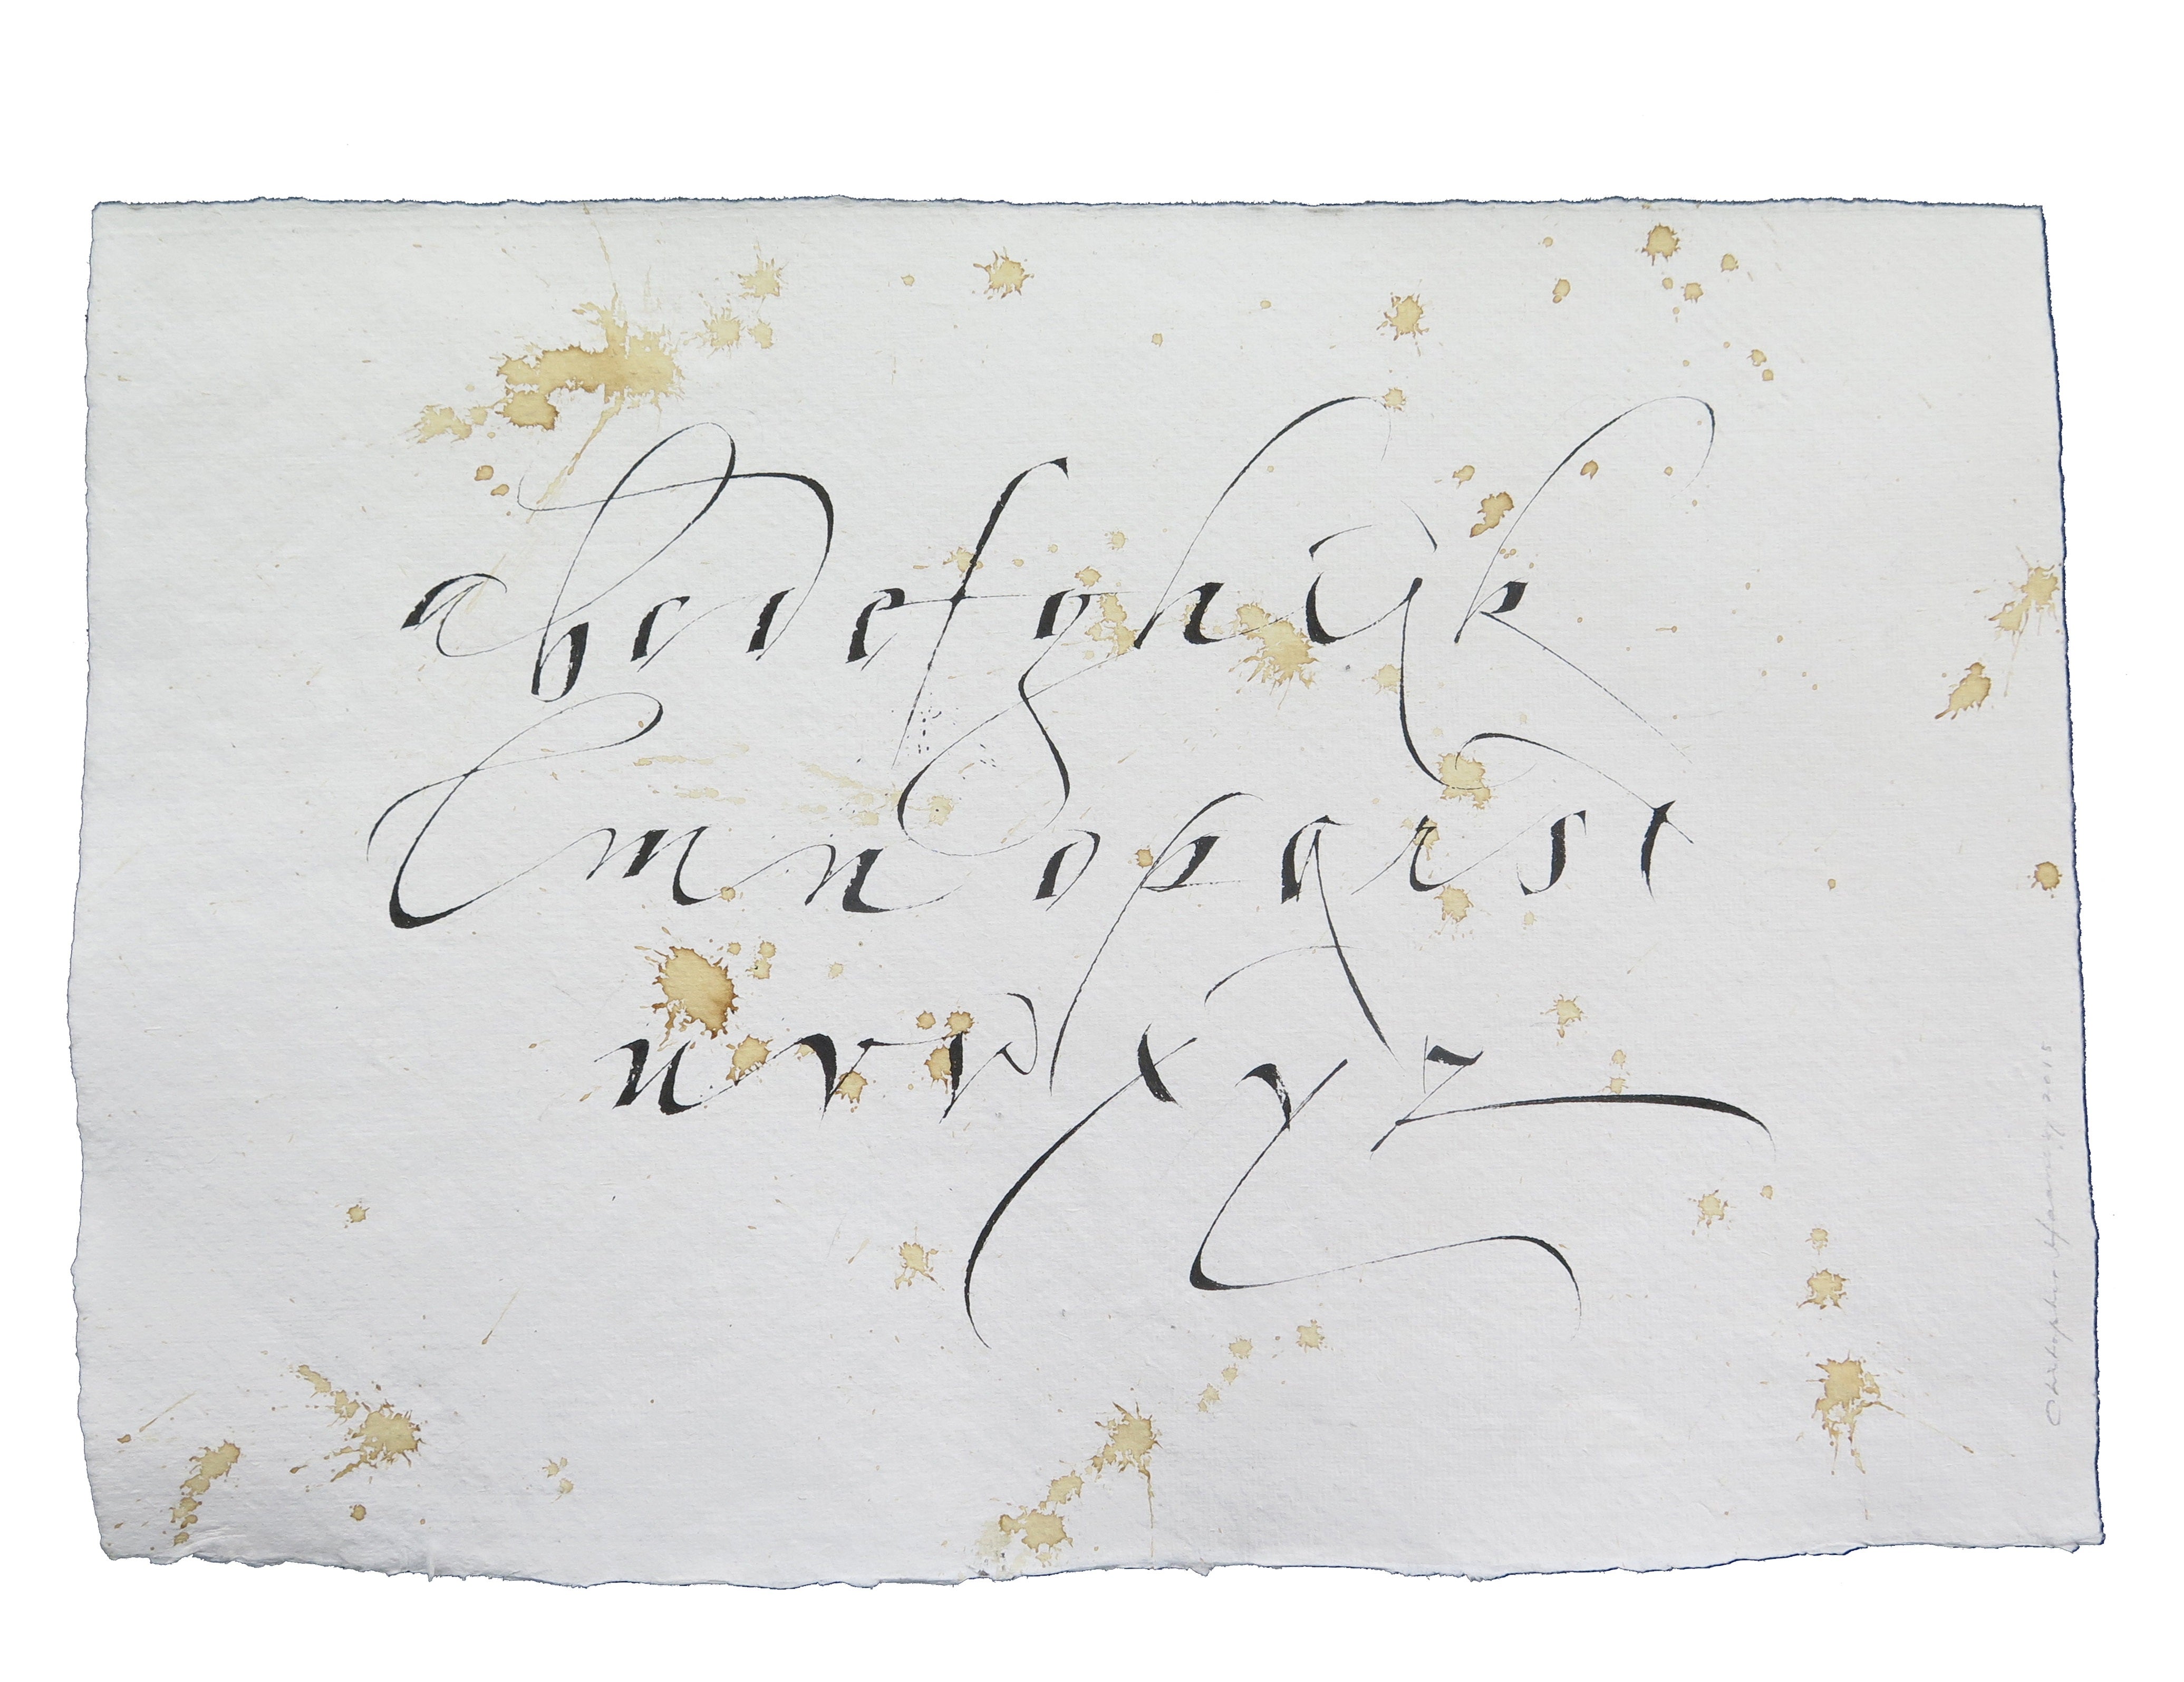 abcdefghijk
lmnopqrst
uvwxyz
Christopher Haanes 2015